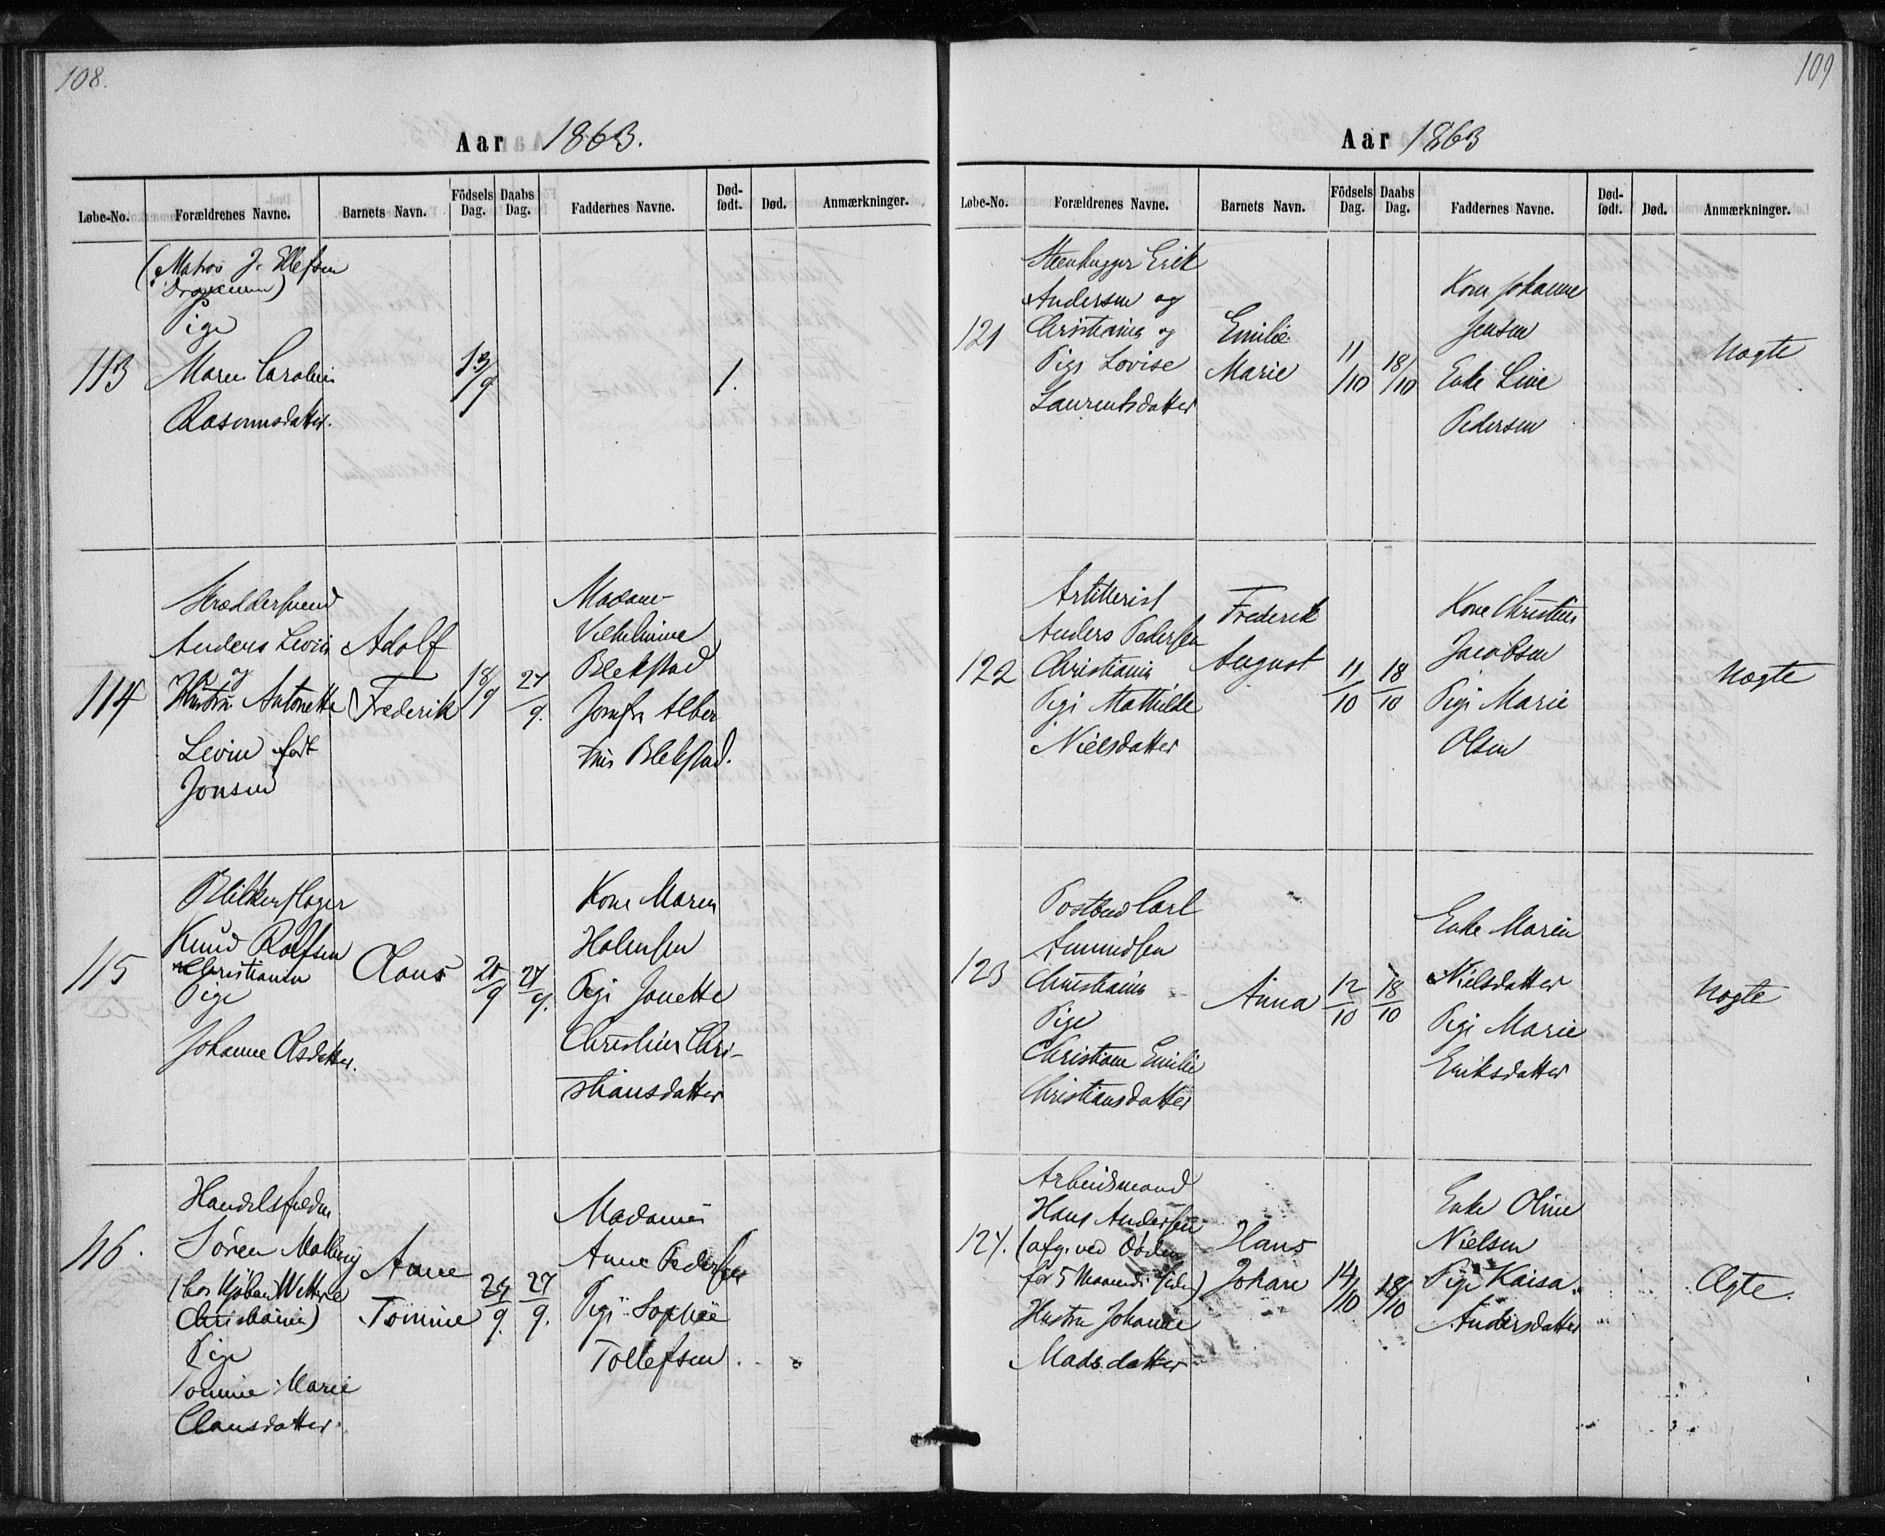 108.
Aar 1863.
Løbe-No. Forældrenes Navne. Barnets Navn. Födsels Dag. Daabs Dag. Faddernes Navne. Død-født. Død. Anmærkninger.
113
(Matros J. Ellefsen
Pige
Maren Caroline
Rasmusdatter.
13/9
1.
114
Skræddersvend
Anders Levin
og
Hustru Antonette
Levin født
Jonsen
Adolf
Frederik
18/9
27/9.
Madame
Vilhelmine
Blekstad
Jomfr Alber
tine Blekstad.
115
Blikkenslager
Knud Rolfsen
Christiania
Pige
Johanne Olsdatter.
Claus
21/9
27/9.
Kone Maren
Halensen
Pige Jonette
Christine Chri-
stiansdatter
116.
Handelsfuldm
Sören Malling
(hos Kjöbm Wetter
Christiania)
Pige
Tomine Marie
Clausdatter.
Anne
Tomine
24/9.
27/9.
Madame
Anne Pedersen
Pige Sophie
Tollefsen
109
Aar 1863
Løbe-No. Forældrenes Navne. Barnets Navn. Födsels Dag. Daabs Dag. Faddernes Navne. Død-født. Død. Anmærkninger.
121
Steenhugger Erik
Andersen og
Christiania og
Pige Lovise
Laurentsdatter
Emilie
Marie
11/10
18/10
Kone Johanne
Jensen
Enke Line
Pedersen
Uægte
122
Artillerist
Anders Pedersen
Christiania
Pige Mathilde
Nielsdatter
Frederik
August
11/10
18/10
Kone Christine
Jacobsen
Pige Marie
Olsen
Uægte
123
Postbud Carl
Amundsen
Christiania
Pige
Christiane Emilie
Christiansdatter
Anna
12/10
18/10
Enke Maren
Nielsdatter
Pige Marie
Eriksdatter
Uægte
124.
Arbeidsmand
Hans Andersen
(afg. ved Døden
for 5 Maaneder siden)
Hustru Johanne
Madsdatter
Hans
Johan
14/10
18/10
Enke Oline
Nielsen
Pige Kaisa
Andersdatter
Ægte.